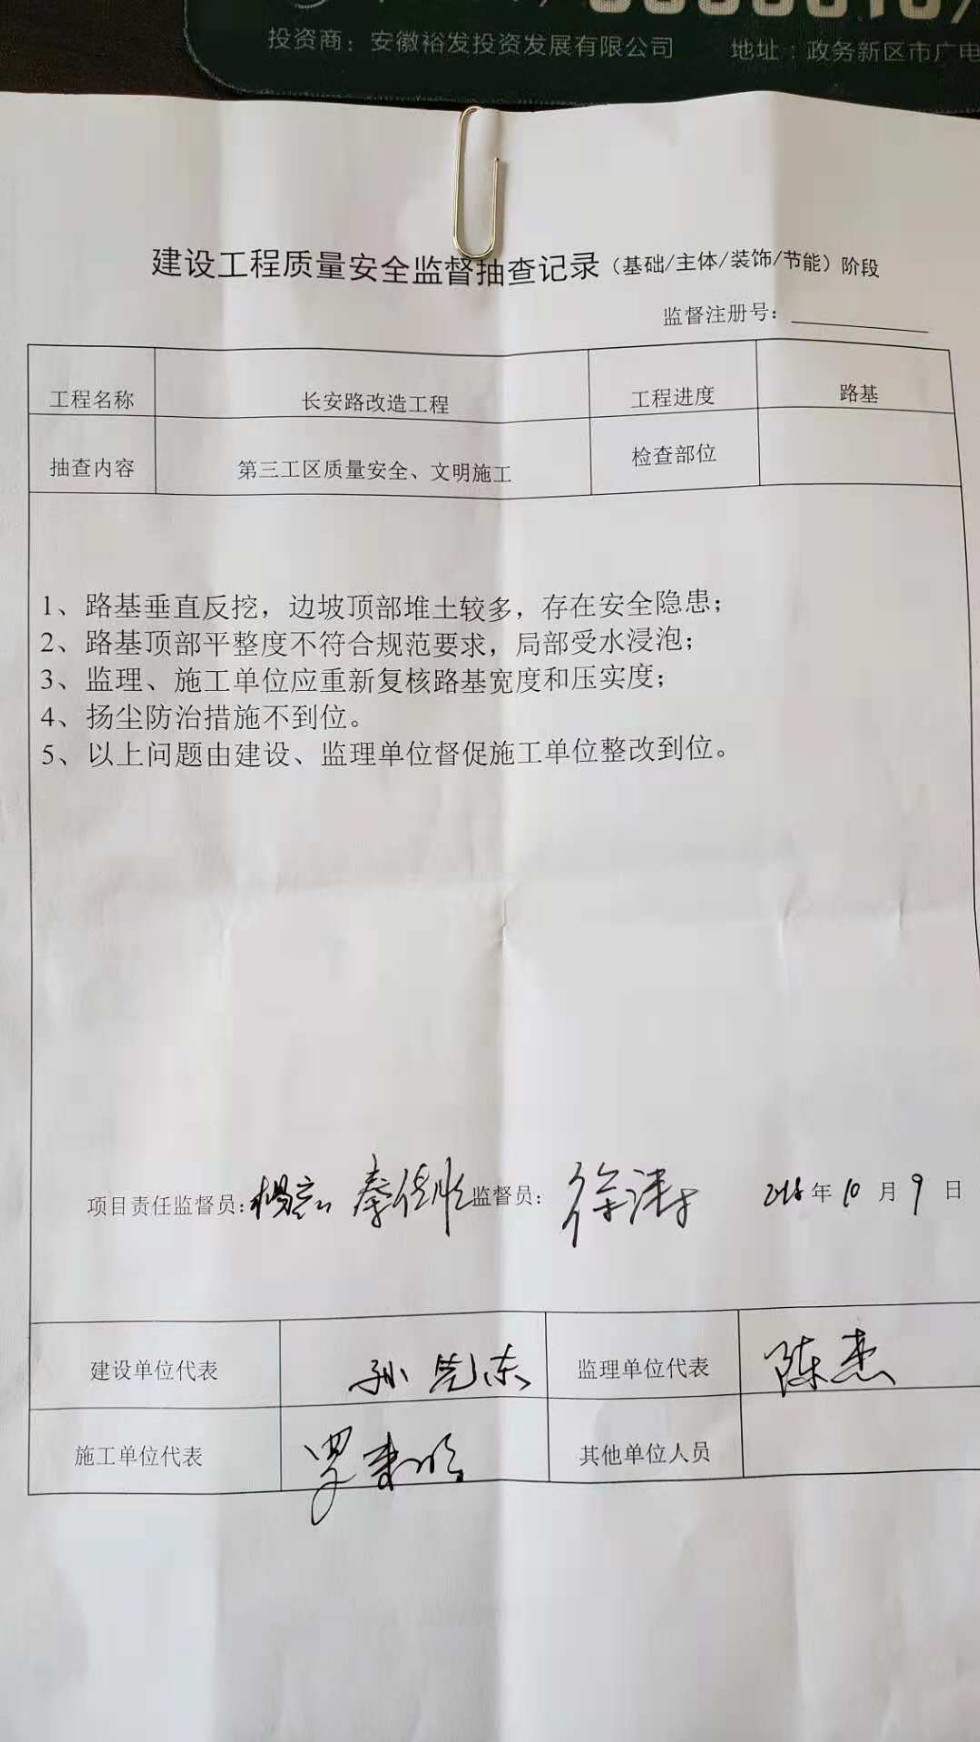 投资商：安徽裕发投资发展有限公司 地址：政务新区市广电
建设工程质量安全监督抽查记录（基础/主体/装饰/节能）阶段
监督注册号：
工程名称 长安路改造工程 工程进度 路基
抽查内容 第三工区质量安全、文明施工 检查部位
1、路基垂直反挖，边坡顶部堆土较多，存在安全隐患；
2、路基顶部平整度不符合规范要求，局部受水浸泡；
3、监理、施工单位应重新复核路基宽度和压实度；
4、扬尘防治措施不到位。
5、以上问题由建设、监理单位督促施工单位整改到位。
项目责任监督员： 监督员： 年10月9日
建设单位代表 监理单位代表 陈杰
施工单位代表 其他单位人员